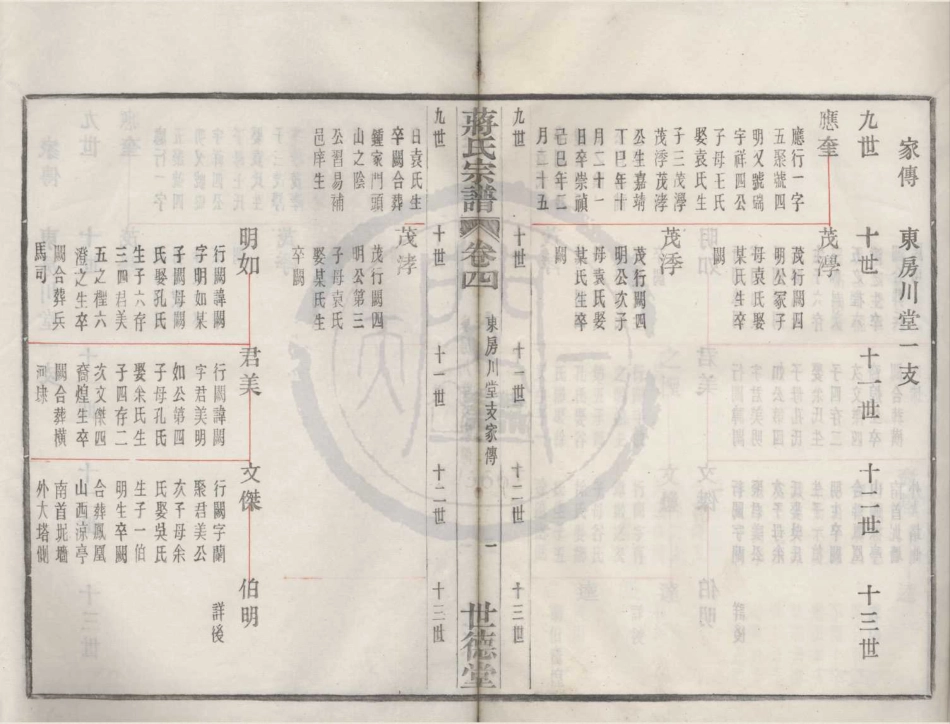 家傳　東房川堂一支
九世　十世　十一世　十二世　十三世
應奎
應行一字
五聚號四
明又號瑞
字祥四公
子母王氏
娶袁氏生
子三茂濘
茂㴆茂浡
公生嘉靖
丁巳年十
月二十一
日卒崇禎
己巳年二
月二十五
茂濘
茂行闕四
明公冢子
母袁氏娶
某氏生卒
闕
茂㴆
茂行闕四
明公次子
母袁氏娶
某氏生卒
闕
九世　十世　十一世　十二世　十三世
蔣氏宗譜　卷四　東房川堂支家傳　一　世德堂
九世　十世　十一世　十二世　十三世
日袁氏生
卒闕合葬
鍾家門頭
山之陰
公習易補
邑庠生
茂浡
茂行闕四
明公第三
子母袁氏
娶某氏生
卒闕
明如
行闕諱闕
字明如某
子闕母闕
氏娶孔氏
生子六存
三四君美
五之樫六
澄之生卒
闕合葬兵
馬司
君美
行闕諱闕
字君美明
如公第四
子母孔氏
娶余氏生
子四存二
次文傑四
裔煌生卒
闕合葬橫
河埭
文傑
行闕字蘭
聚君美公
次子母余
氏娶吳氏
生子一伯
明生卒闕
合葬鳳凰
山西涼亭
南首坭墻
外大塔側
伯明
詳後